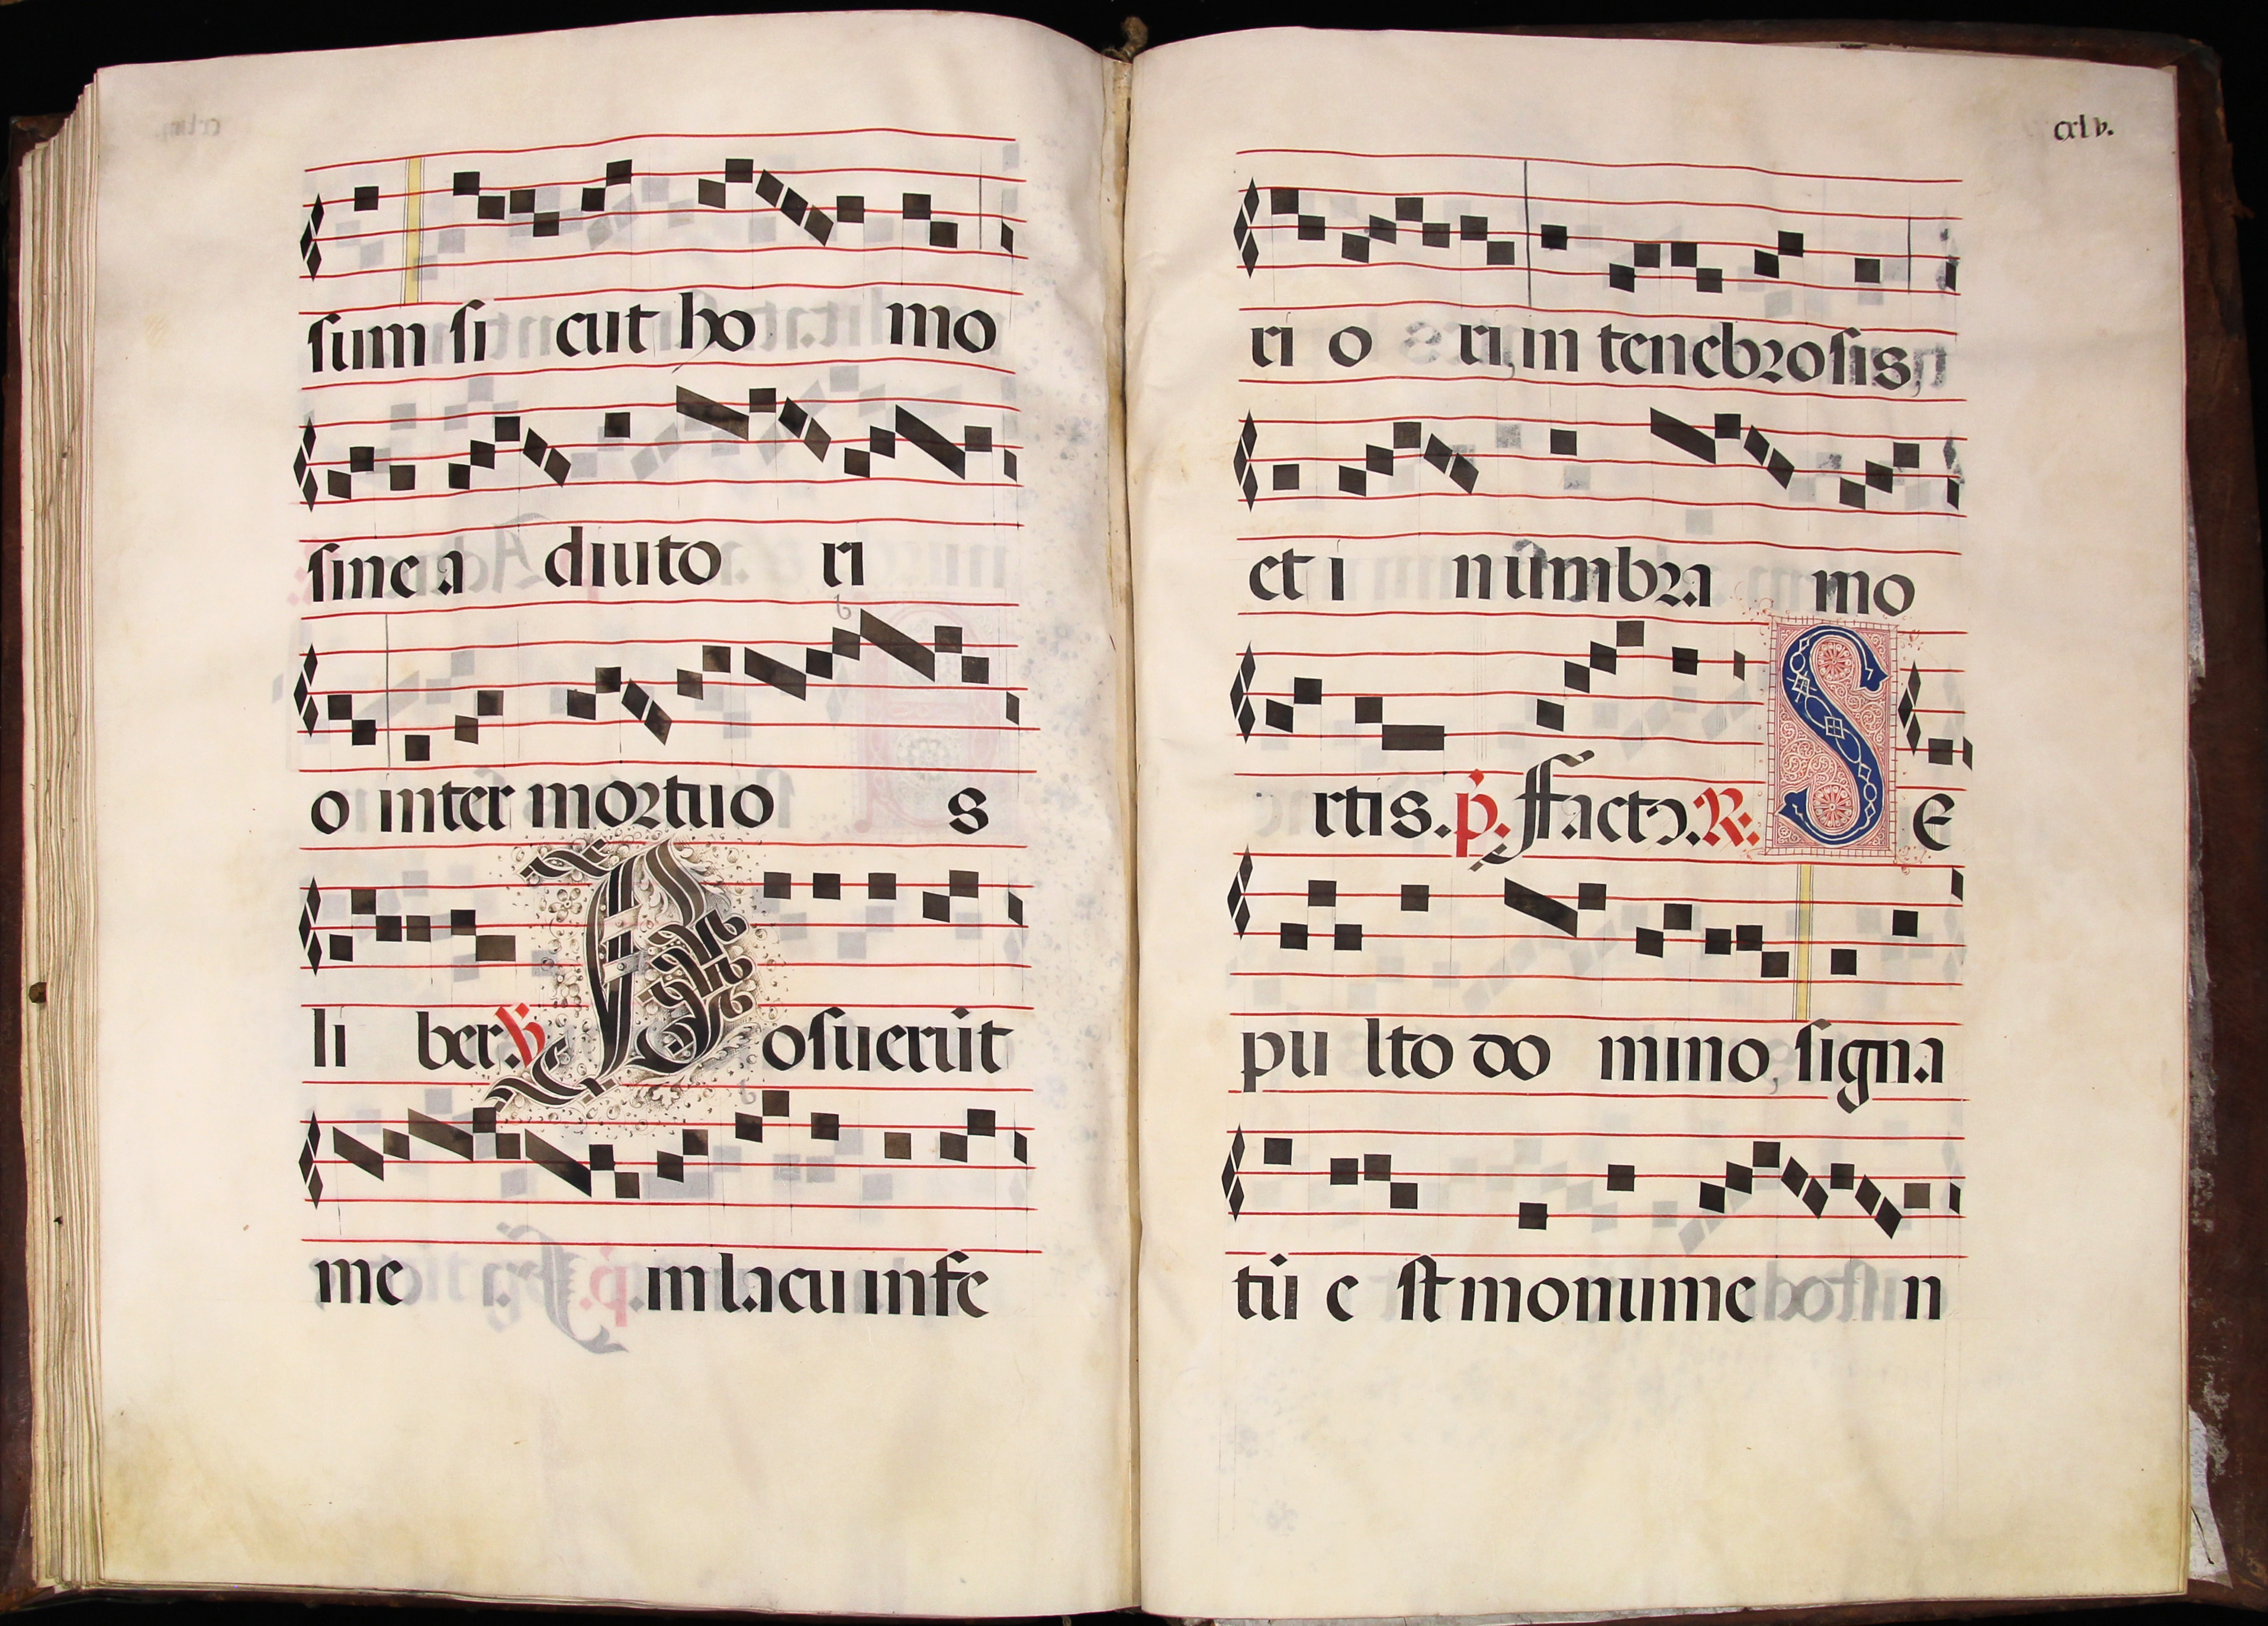 sum si cut ho mo
sine a diuto ri
o inter mortuo s
li ber. ℣ Posuerūt
me in lacu infe
cxlv.
ri o ri, in tenebrosis,
et i n ūmbra mo
rtis. p̄. ffact᷒. ℟. SE
pu lto do mino, signa
tū e st monume n